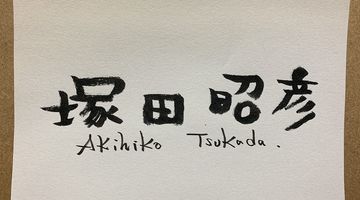 塚田昭彦
Akihiko Tsukada.